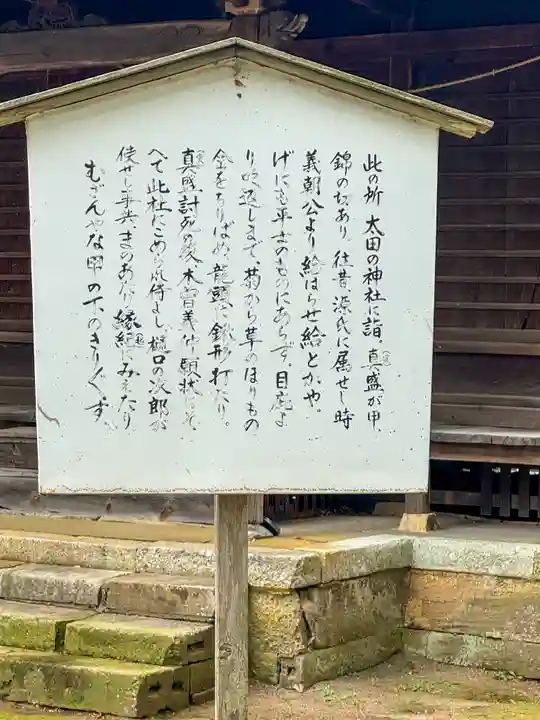 此の所 太田の神社に詣。真盛が甲、
錦の切あり。往昔源氏に属せし時
義朝公より給はらせ給とかや。
げにも平士のものにあらず。目庇よ
り吹返しまで、菊から草のほりもの
金をちりばめ、龍頭に鍬形打たり。
真盛討死の後、木曽義仲願状にそ
へて此社にこめられ侍よし、樋口の次郎が
使せし事共、まのあたり縁紀にみえたり
むざんやな甲の下のきりぎりす